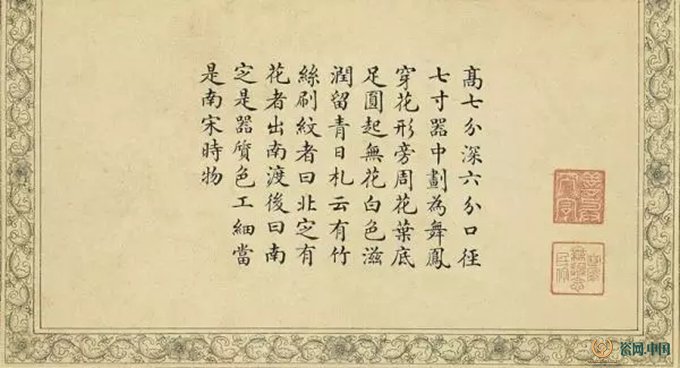 髙七分深六分口徑
七寸器中劃為舞鳳
穿花形旁周花葉底
足圓起無花白色滋
潤留青日札云有竹
絲刷紋者曰北㝎有
花者出南渡後曰南
㝎是器質色工細當
是南宋時物
网.中国